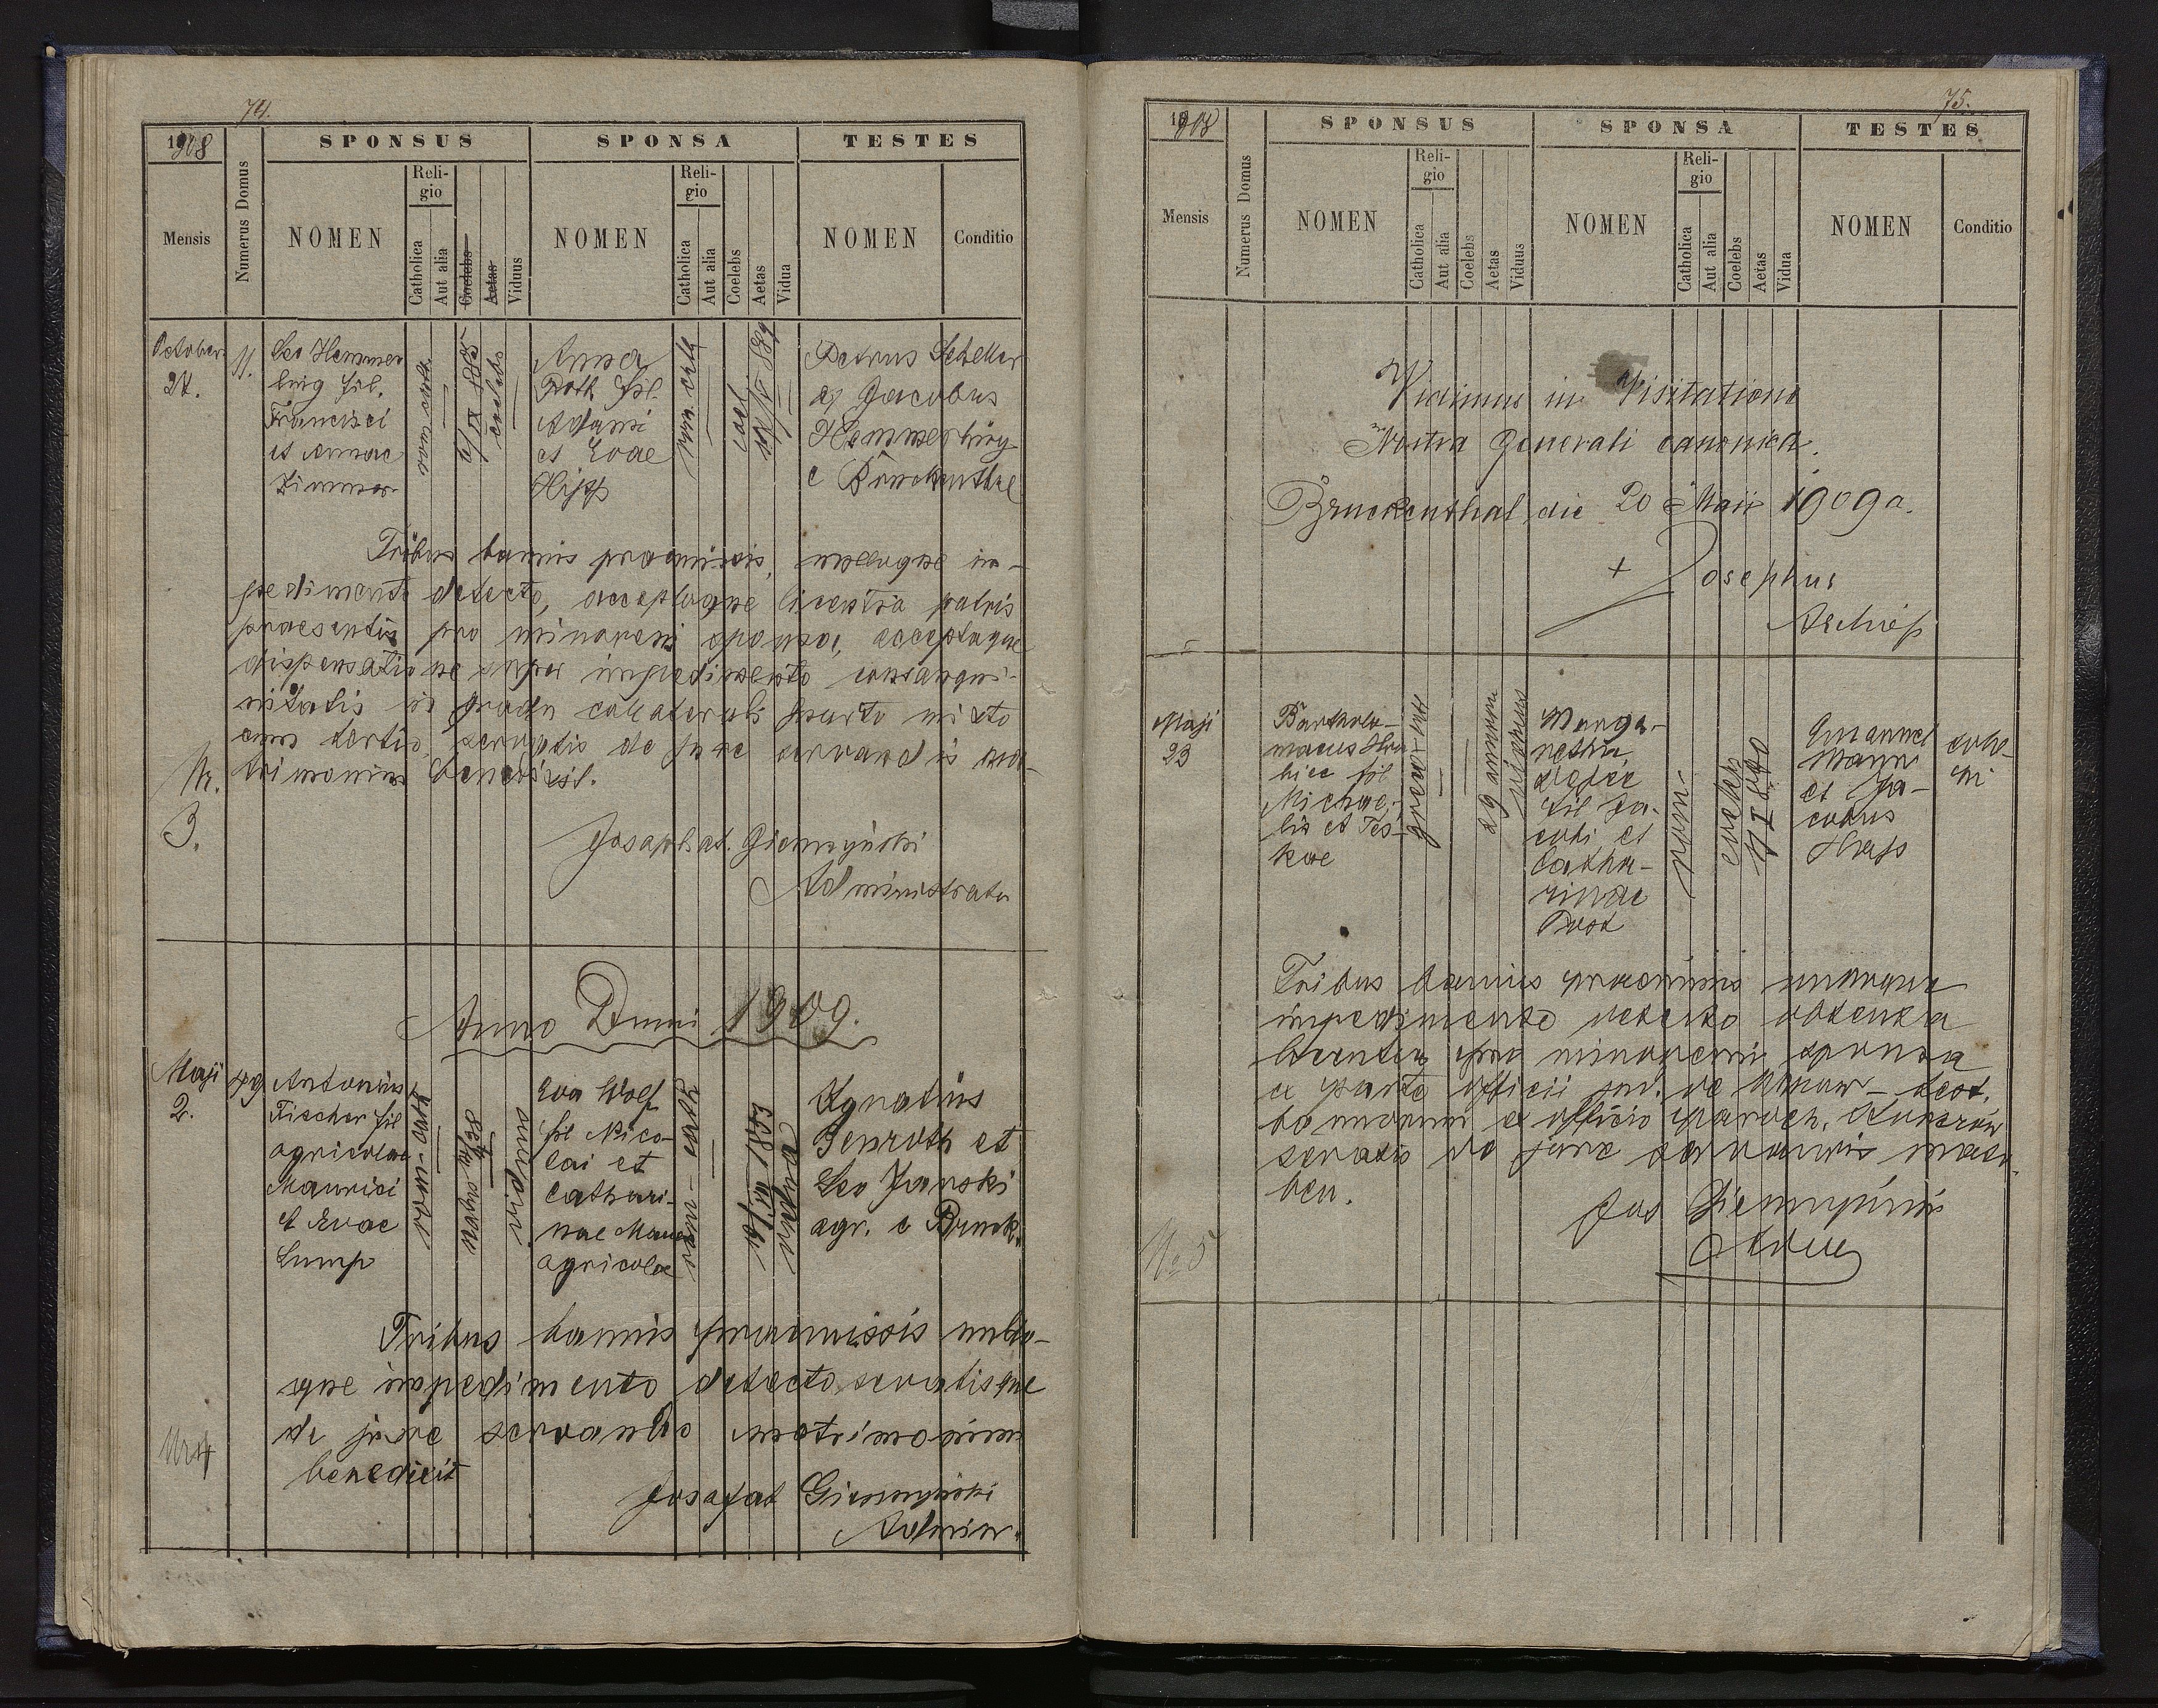 74.
1908
SPONSUS
SPONSA
TESTES
Mensis
Numerus Domus
NOMEN
Reli-
gio
Catholica
Aut alia
Coelebs
Aetas
Viduus
NOMEN
Reli-
gio
Catholica
Aut alia
Coelebs
Aetas
Vidua
NOMEN
Conditio
October
24.
11.
Leo Hemmer
ling fil.
Francisci
et Annae
Zimmer
rom cath
6/IX 885
coelebs
Anna
Roth fil.
Adami
et Evae
Hipp
rom cath
coel
Petrus Scheller
Jacobus
Hemmerling
e Bruckenthal
Tribus bannis praemissis, nulloque im-
pedimento detecto, acceptaque licentia patris
praesentis pro minoreni sponsa, acceptaque
dispensatione super impedimento consangui-
nitatis in gradu collaterali quarto mixto
cum tertio, servatis de jure servandis ma-
trimonium benedixit.
Nr.
3.
Josaphat. Giemzyński
Administrator
Anno Dmni 1909.
Maji
2.
49
Antonius
Fischer fil
agricolae
Maurici
et Evae
Lump
rom-cath
viduus
Eva Wolf
fil Nico-
lai et
Cathari-
nae Mauer
agricolae
rom-cath
1853
vidua
Ignatius
Benroth et
Leo Janski
agr. e Bruck.
Tribus bannis praemissis nullo-
que impedimento detecto servatisque
de jure servando matrimonium
benedixit
Nr 4
Josafat Giemzyński
Admin.
75.
1908
SPONSUS
SPONSA
TESTES
Mensis
Numerus Domus
NOMEN
Reli-
gio
Catholica
Aut alia
Coelebs
Aetas
Viduus
NOMEN
Reli-
gio
Catholica
Aut alia
Coelebs
Aetas
Vidua
NOMEN
Conditio
Vidimus in Visitatione
Nostra generali canonica.
Bruckenthal die 20 Maii 1909 a.
+ Josephus
Archiep
Maji
23
Bartholo-
maeus Hra
bicc fil
Michae-
lis et Tes-
kae
greco-catt
29 annorum
viduus
Marga-
retha
fil Ja-
cobi et
Catha-
rinae
Post
rom-
coelebs
11 I 890
Emanuel
Mann
et Ja-
cobus
Hass
colo-
ni
Tribus bannis praemissis
impedimento detecto obtenta
licentia pro minoreni sponsa
ex parte officii jud. de
bannorum ex officio paroch.
servatis de jure servandis matr.
ben.
Jos Giemzyński
Nr 5